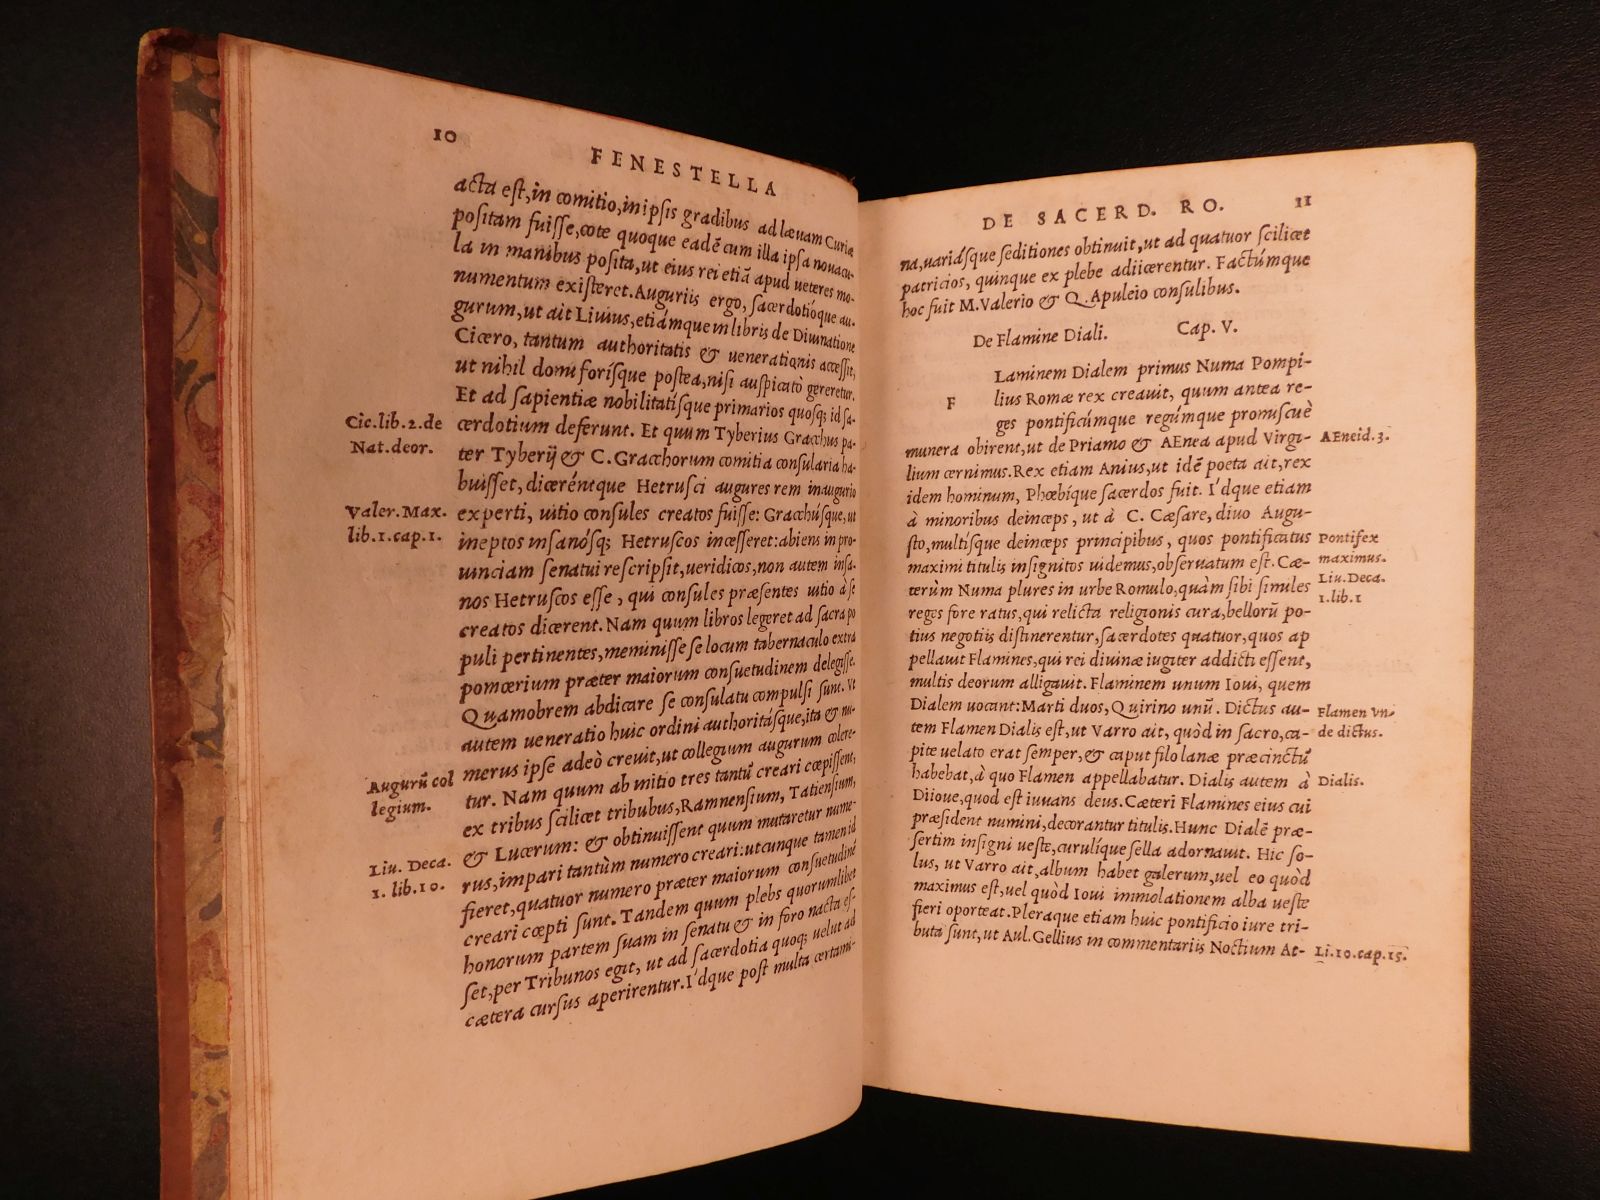 10
FENESTELLA
acta est, in comitio, in ipsis gradibus ad lævam Curiæ
positam fuisse, cote quoque eadē cum illa ipsa nouacu-
la in manibus posita, ut eius rei etiā apud ueteres mo-
numentum existeret. Auguriis ergo, sacerdotióque au-
gurum, ut ait Liuius, etiámque in libris de Diuinatione
Cicero, tantum authoritatis & uenerationis accessit,
ut nihil domi forísque postea, nisi auspicatò gereretur.
Et ad sapientiæ nobilitatísque primarios quosq; id sa-
Cic. lib. 2. de
Nat. deor.
cerdotium deferunt. Et quum Tyberius Gracchus pa-
ter Tyberij & C. Gracchorum comitia consularia ha-
buisset, dicerentque Hetrusci augures rem inaugurio
Valer. Max.
lib. 1. cap. 1.
experti, uitio consules creatos fuisse: Gracchúsque, ut
ineptos insanósq; Hetruscos incesseret: abiens in pro-
uinciam senatui rescripsit, ueridicos, non autem insa-
nos Hetruscos esse, qui consules præsentes uitio à se
creatos dicerent. Nam quum libros legeret ad sacra po
puli pertinentes, meminisse se locum tabernaculo extra
pomœrium præter maiorum consuetudinem delegisse.
Quamobrem abdicare se consulatu compulsi sunt. Vt
autem ueneratio huic ordini authoritásque, ita & nu-
merus ipse adeò creuit, ut collegium augurum colere-
Augurū col
legium.
tur. Nam quum ab initio tres tantū creari cœpissent,
ex tribus scilicet tribubus, Ramnensium, Tatiensium,
& Lucerum: & obtinuissent quum mutaretur nume-
Liu. Deca.
1. lib. 10.
rus, impari tantùm numero creari: utcunque tamen id
fieret, quatuor numero præter maiorum consuetudinē
creari cœpti sunt. Tandem quum plebs quorumlibet
honorum partem suam in senatu & in foro nacta es-
set, per Tribunos egit, ut ad sacerdotia quoq; uelut ad
cætera cursus aperirentur. I'dque post multa certami-
DE SACERD. RO.
11
na, uariásque seditiones obtinuit, ut ad quatuor scilicet
patricios, quinque ex plebe adiicerentur. Factúmque
hoc fuit M. Valerio & Q. Apuleio consulibus.
De Flamine Diali. Cap. V.
F
Laminem Dialem primus Numa Pompi-
lius Romæ rex creauit, quum antea re-
ges pontificúmque regúmque promiscuè
munera obirent, ut de Priamo & AEnea apud Virgi-
AEneid. 3.
lium cernimus. Rex etiam Anius, ut idē poeta ait, rex
idem hominum, Phœbíque sacerdos fuit. I'dque etiam
à minoribus deinceps, ut à C. Cæsare, diuo Augu-
sto, multísque deinceps principibus, quos pontificatus
Pontifex
maximus.
Liu. Deca.
1. lib. 1
maximi titulis insignitos uidemus, obseruatum est. Cæ-
terùm Numa plures in urbe Romulo, quàm sibi similes
reges fore ratus, qui relicta religionis cura, bellorū po-
tius negotiis distinerentur, sacerdotes quatuor, quos ap
pellauit Flamines, qui rei diuinæ iugiter addicti essent,
multis deorum alligauit. Flaminem unum Ioui, quem
Dialem uocant: Marti duos, Quirino unū. Dictus au-
Flamen vn-
de dictus.
tem Flamen Dialis est, ut Varro ait, quòd in sacro, ca-
pite uelato erat semper, & caput filo lanæ præcinctū
habebat, à quo Flamen appellabatur. Dialis autem à
Dialis.
Diioue, quod est iuuans deus. Cæteri Flamines eius cui
præsident numini, decorantur titulis. Hunc Dialē præ-
sertim insigni ueste, curulíque sella adornauit. Hic so-
lus, ut Varro ait, album habet galerum, uel eo quòd
maximus est, uel quòd Ioui immolationem alba ueste
fieri oporteat. Pleraque etiam huic pontificio iure tri-
buta sunt, ut Aul. Gellius in commentariis Noctium At-
Li. 10. cap. 15.